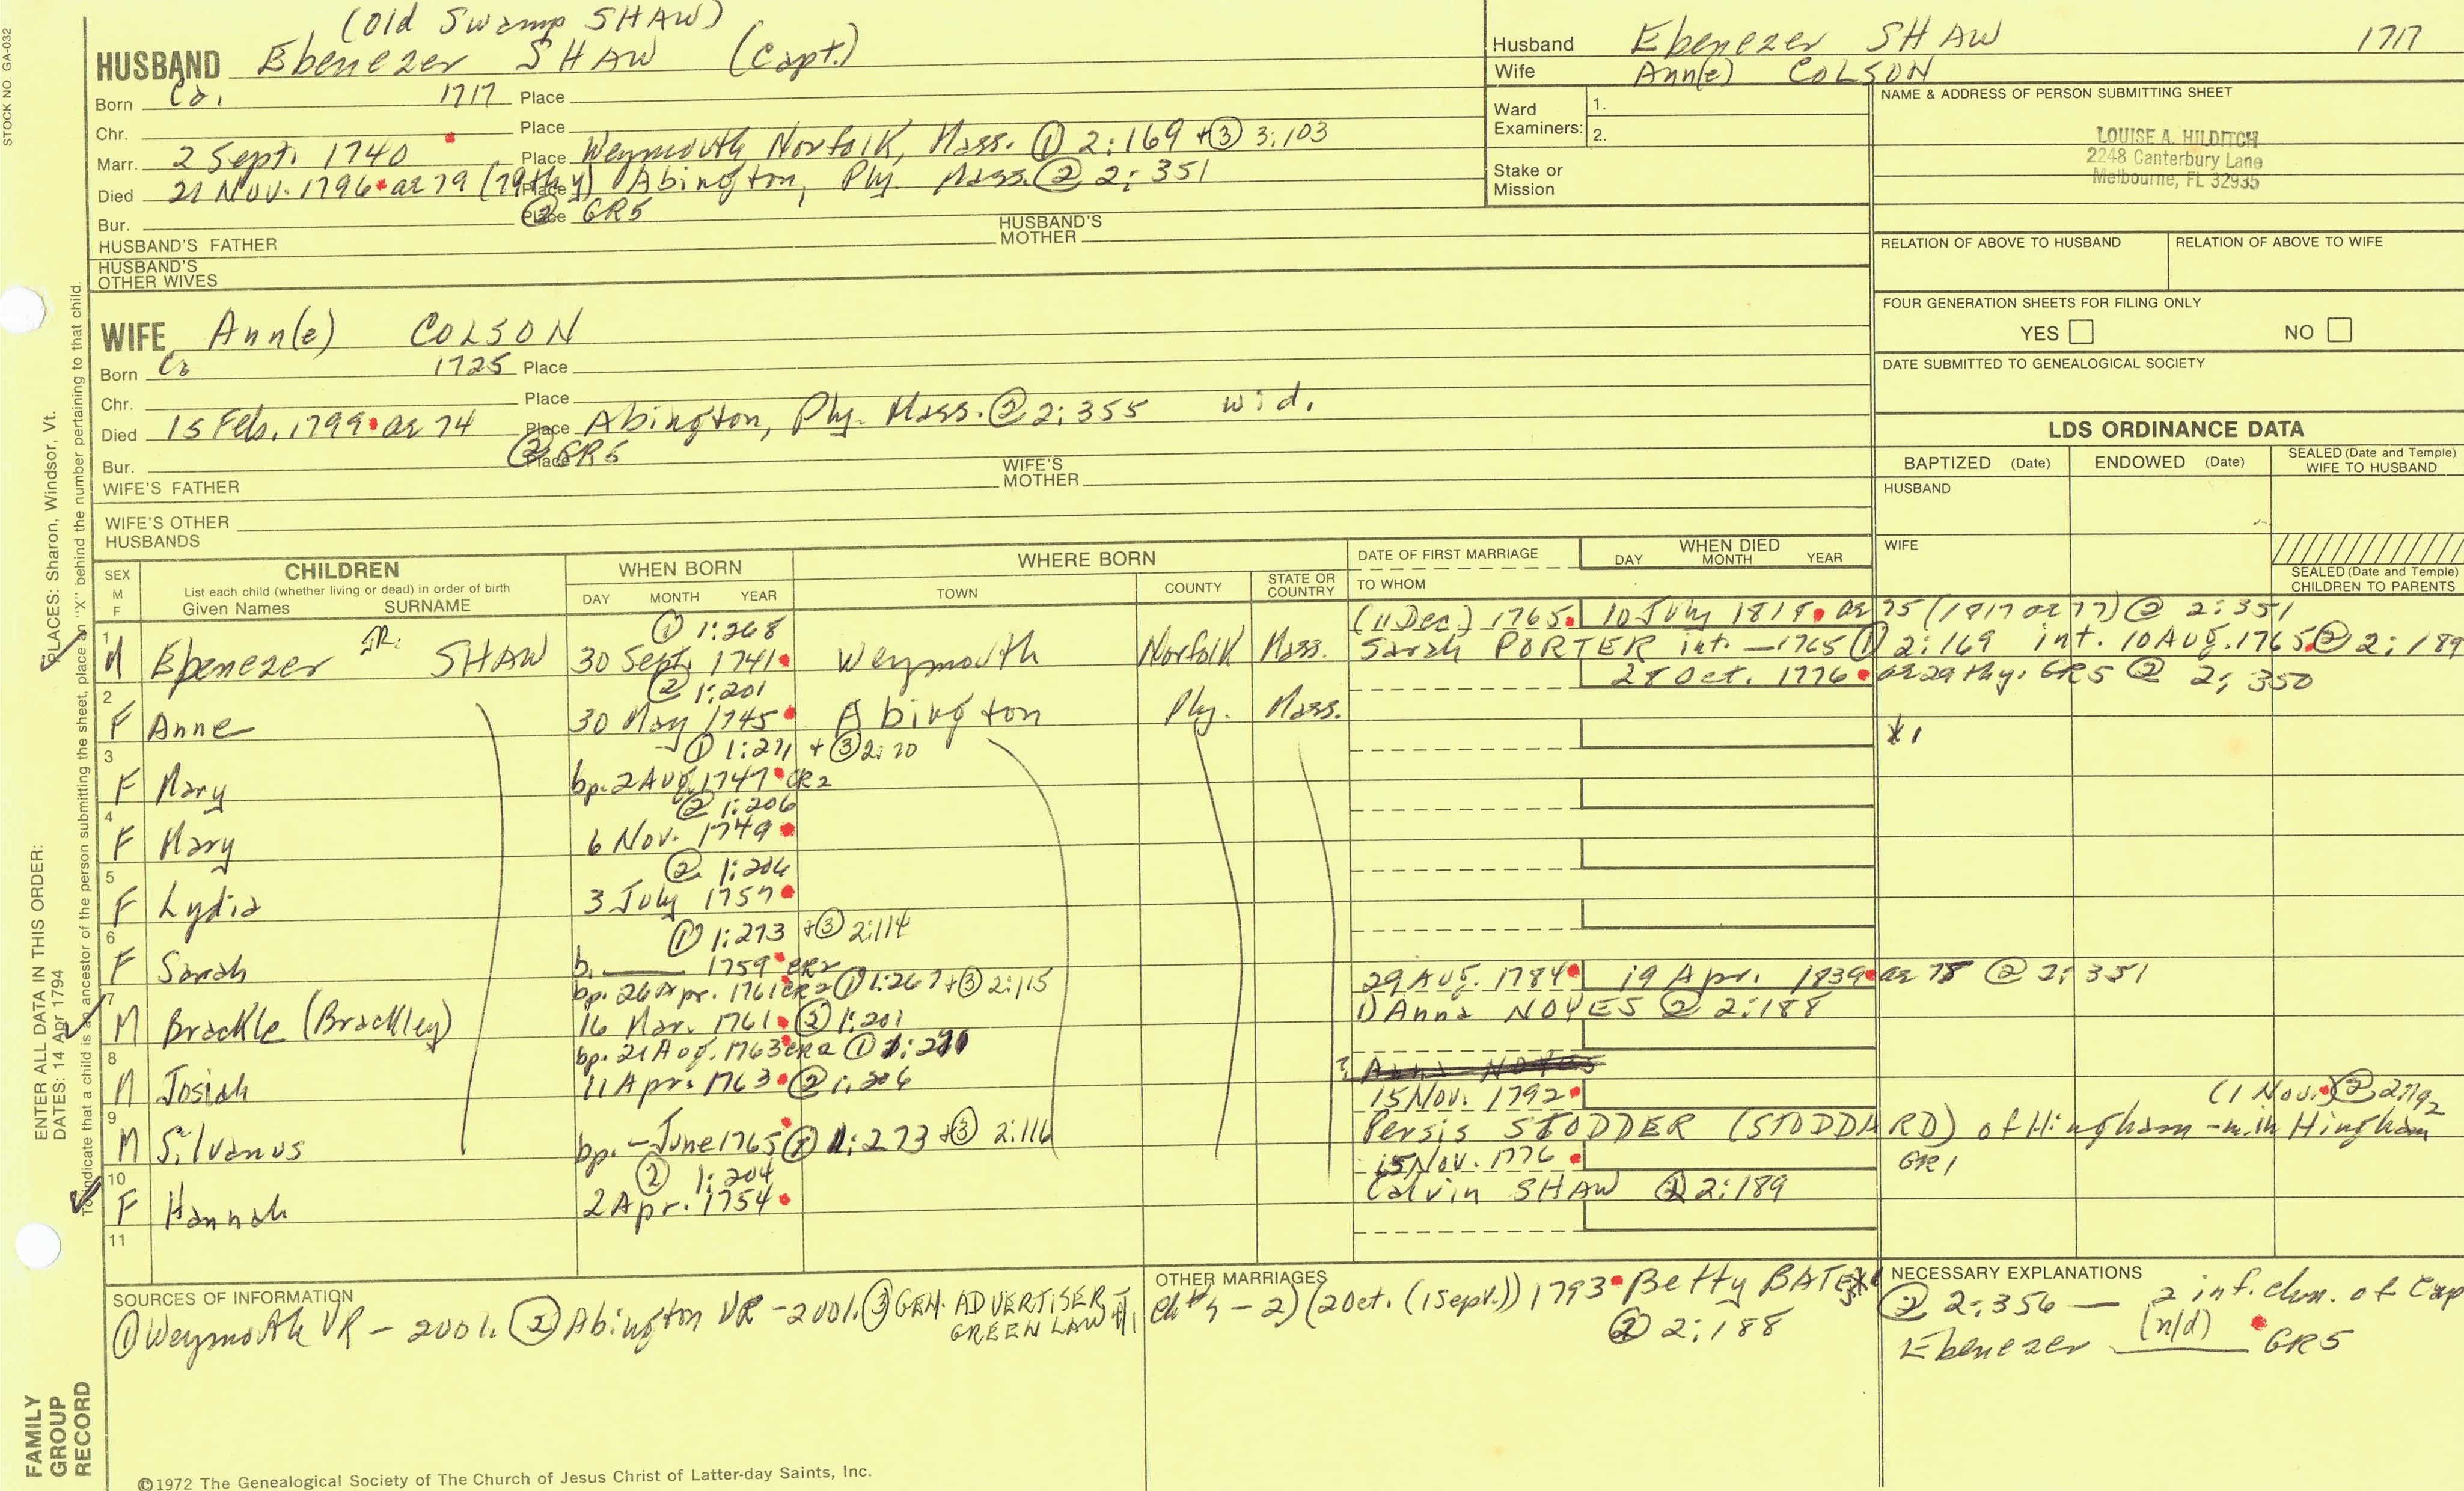 STOCK NO. GA-032
(Old Swamp SHAW)
HUSBAND Ebenezer SHAW (Capt.)
Born Ca. 1717 Place
Chr. Place
Marr. 2 Sept. 1740 Place Weymouth Norfolk, Mass. ① 2:169 + ③ 3:103
Died 21 Nov. 1796 ae 79 (79th y) Place Abington, Ply. Mass. ② 2:351
Bur. Place ② GR5
HUSBAND'S FATHER HUSBAND'S MOTHER
HUSBAND'S OTHER WIVES
Husband Ebenezer SHAW 1717
Wife Ann(e) COLSON
Ward Examiners: 1.
2.
Stake or Mission
NAME & ADDRESS OF PERSON SUBMITTING SHEET
LOUISE A. HILDITCH
2248 Canterbury Lane
Melbourne, FL 32935
RELATION OF ABOVE TO HUSBAND RELATION OF ABOVE TO WIFE
FOUR GENERATION SHEETS FOR FILING ONLY
YES NO
DATE SUBMITTED TO GENEALOGICAL SOCIETY
WIFE Ann(e) COLSON
Born Ca 1725 Place
Chr. Place
Died 15 Feb. 1799 ae 74 Place Abington, Ply. Mass. ② 2:355 wid.
Bur. Place ② GR5
WIFE'S FATHER WIFE'S MOTHER
WIFE'S OTHER HUSBANDS
LDS ORDINANCE DATA
BAPTIZED (Date) ENDOWED (Date) SEALED (Date and Temple) WIFE TO HUSBAND
HUSBAND
WIFE
SEALED (Date and Temple) CHILDREN TO PARENTS
SEX M F CHILDREN
List each child (whether living or dead) in order of birth
Given Names SURNAME
WHEN BORN DAY MONTH YEAR
WHERE BORN TOWN COUNTY STATE OR COUNTRY
DATE OF FIRST MARRIAGE TO WHOM
WHEN DIED DAY MONTH YEAR
① 1:268 (11 Dec.) 1765 10 July 1818 ae 75 (1817 ae 77) ② 2:351
1 M Ebenezer JR. SHAW 30 Sept. 1741 Weymouth Norfolk Mass. Sarah PORTER int. — 1765 ① 2:169 int. 10 Aug. 1765 ② 2:189
② 1:201 28 Oct. 1776 ae 29th y. GR5 ② 2:350
2 F Anne 30 May 1745 Abington Ply. Mass.
① 1:271 + ③ 2:70
3 F Mary bp. 2 Aug. 1747 CR2
② 1:206
4 F Mary 6 Nov. 1749
② 1:206
5 F Lydia 3 July 1757
① 1:273 + ③ 2:114
6 F Sarah b. ____ 1759 CR2
bp. 26 Apr. 1761 CR2 ① 1:267 + ③ 2:115 29 Aug. 1784 19 Apr. 1839 ae 78 ② 2:351
7 M Brackle (Brackley) 16 Mar. 1761 ② 1:201 1) Anna NOYES ② 2:188
bp. 21 Aug. 1763 CR2 ① 1:270
8 M Josiah 11 Apr. 1763 ② 1:206 ? Anna NOYES
15 Nov. 1792 (1 Nov.) ② 2:192
9 M Silvanus bp. — June 1765 ① 1:273 + ③ 2:116 Persis STODDER (STODDARD) of Hingham - m. in Hingham
② 1:204 15 Nov. 1776 GR1
10 F Hannah 2 Apr. 1754 Calvin SHAW ② 2:189
11
SOURCES OF INFORMATION
① Weymouth VR - 2001. ② Abington VR - 2001. ③ GEN. ADVERTISER - GREENLAW
OTHER MARRIAGES
ch # 7 - 2) (2 Oct. (1 Sept.)) 1793 Betty BATES
② 2:188
NECESSARY EXPLANATIONS
② 2:356 — 2 inf. chn. of Cap
Ebenezer (n/d) GR5
PLACES: Sharon, Windsor, Vt.
To indicate that a child is an ancestor of the person submitting the sheet, place an "X" behind the number pertaining to that child.
ENTER ALL DATA IN THIS ORDER:
DATES: 14 Apr 1794
FAMILY GROUP RECORD
©1972 The Genealogical Society of The Church of Jesus Christ of Latter-day Saints, Inc.